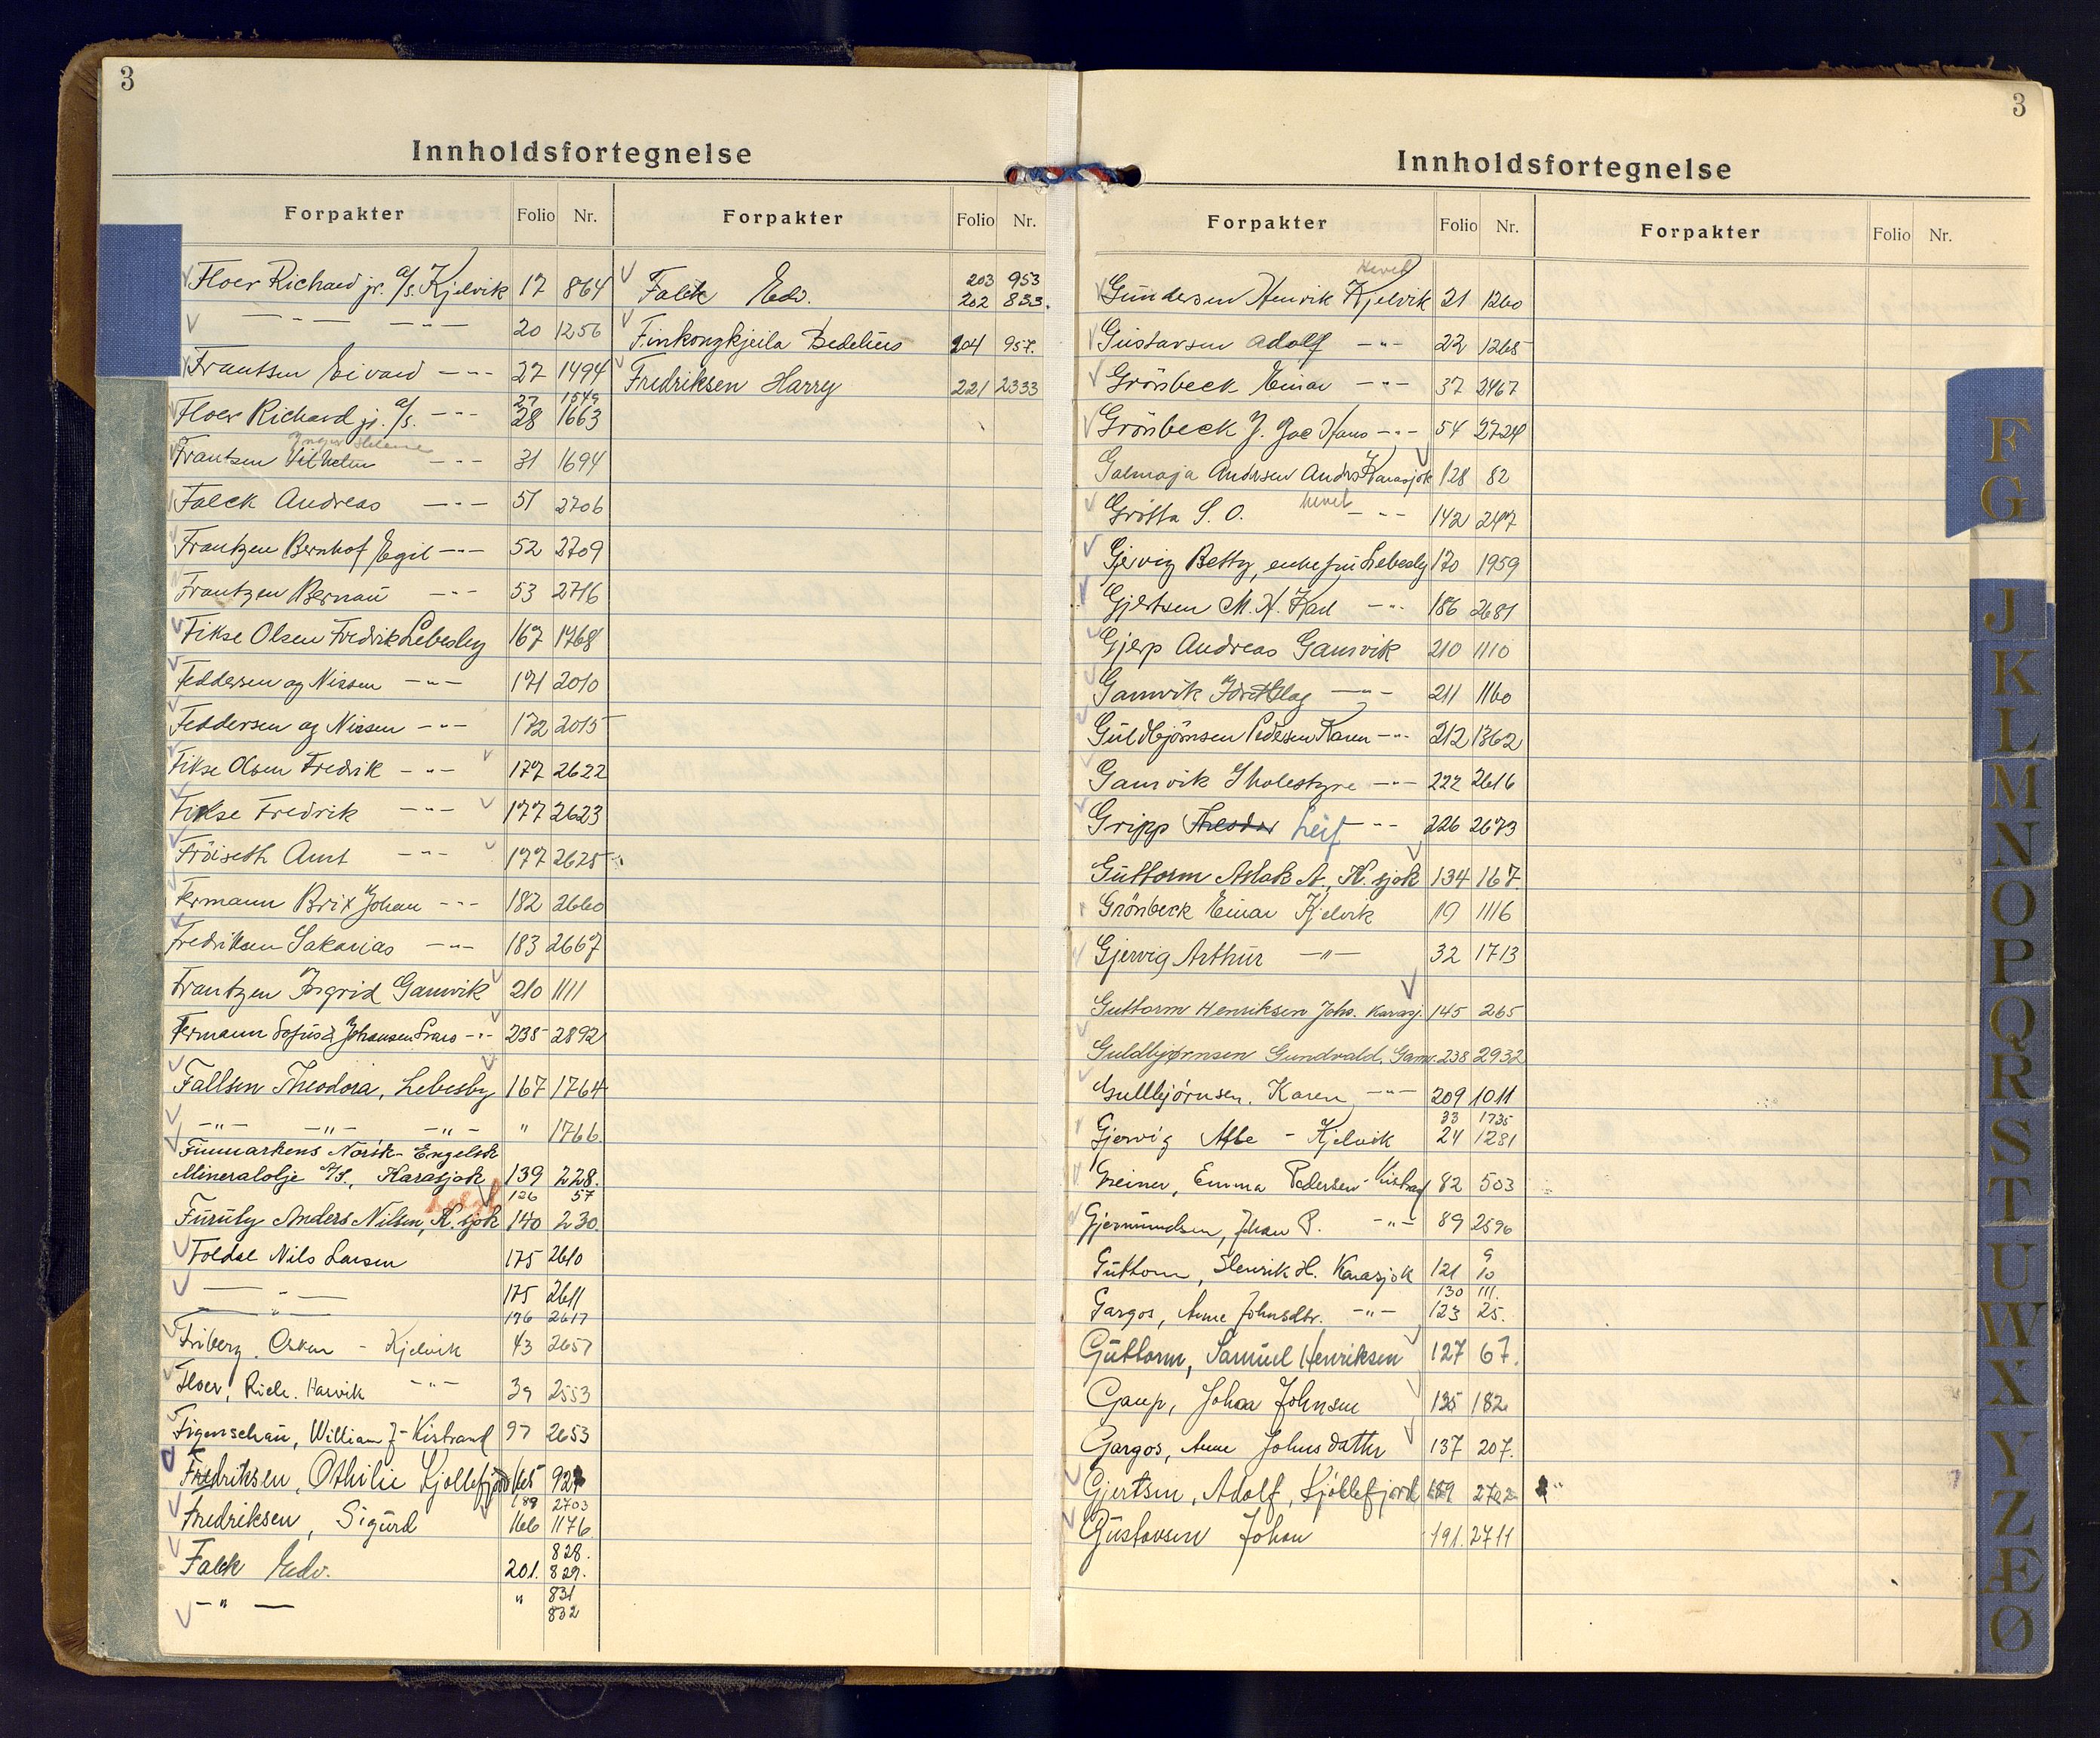 3
Innholdsfortegnelse
Forpakter Folio Nr. Forpakter Folio Nr.
Floer Richard jr. a/s. Kjelvik 17 864
— " — — " — 20 1256
Frantsen Eivard — " — 27 1494
27 1549
Floer Richard jr. a/s. — " — 28 1663
Inger Helene
Frantsen Vilhelm — " — 31 1694
Falck Andreas — " — 51 2706
Frantzen Bernhof Egil — " — 52 2709
Frantzen Bernau — " — 53 2716
Fikse Olsen Fredrik Lebesby 167 1768
Feddersen og Nissen — " — 171 2010
Feddersen og Nissen — " — 172 2015
Fikse Olsen Fredrik — " — 177 2622
Fikse Fredrik — " — 177 2623
Fröiseth Arnt — " — 177 2625
Fermann Brix Johan — " — 182 2660
Fredriksen Sakarias — " — 183 2667
Frantzen Ingrid Gamvik 210 1111
Fermann Sofus & Johansen — " — 235 2892
Fallsen Theodora, Lebesby 167 1764
— " — — " — — " — " 1766.
Finnmarkens Norsk-Engelsk
Mineralolje A/S., Karasjok 139 228.
126 57
Furuly Anders Nilsen, K. sjok 140 230
Foldal Nils Larsen 175 2610
— " — 175 2611
— " — 176 2617
Friberg. Oskar - Kjelvik 43 2657
Floer, Rich. Harvik — " — 39 2553
Figenschau, William J - Kistrand 97 2653
Fredriksen, Othilie Kjöllefjord 165 92
189 2703
Fredriksen, Sigurd 166 1176
828.
Falck Edv. 201. 829.
— " — " 831
832
203 953
Falck Edv. 202 833.
Finkongkjeila Bedehus 204 957.
Fredriksen Harry 221 2333
3
Innholdsfortegnelse
Forpakter Folio Nr. Forpakter Folio Nr.
hevet
Gundersen Henrik Kjelvik 21 1260
Gustavsen Adolf — " — 22 1265
Grönbeck Einar — " — 37 2467
Grönbeck J. Jac Hans — " — 54 2724
Galmaja Andersen Anders Karasjok 128 82
hevet
Grötta S. O. — " — 142 247
Gjervig Betty, enkefru Lebesby 170 1959
Gjertsen M. H. Karl — " — 186 2681
Gjerp Andreas Gamvik 210 1110
Gamvik Idrettslag — " — 211 1160
Guldbjörnsen Pedersen Karen — " — 212 1362
Gamvik Skolestyre — " — 222 2616
Gripp Theodor Leif — " — 226 2673
Guttorm Aslak A., K. sjok 134 167
Grönbeck Einar Kjelvik 19 1116
Gjervig Arthur — " — 32 1713
Guttorm Henriksen Johs. Karasj. 145 265
Guldbjørnsen Gundvald, Gamv. 238 2932
Gullbjörnsen, Karen — " — 209 1011
33 1735
Gjervig - Kjelvik 24 1281
Greiner, Emma Pedersen - Kistrand 82 503
Gjermundsen, Johan P. — " — 89 2596
9
Guttorm, Henrik H. Karasjok 121 10
130 111.
Gargos, Anne Johnsdtr. — " — 123 25.
Guttorm, Samuel Henriksen 127 67.
Gaup, Johan Johnsen 135 182
Gargos, Anne Johnsdatter 137 207.
Gjertsen, Adolf, Kjöllefjord 189 2702
Gustavsen Johan 191. 2711
F
G
J
K
L
M
N
O
P
Q
R
S
T
U
W
X
Y
Z
Æ
Ø